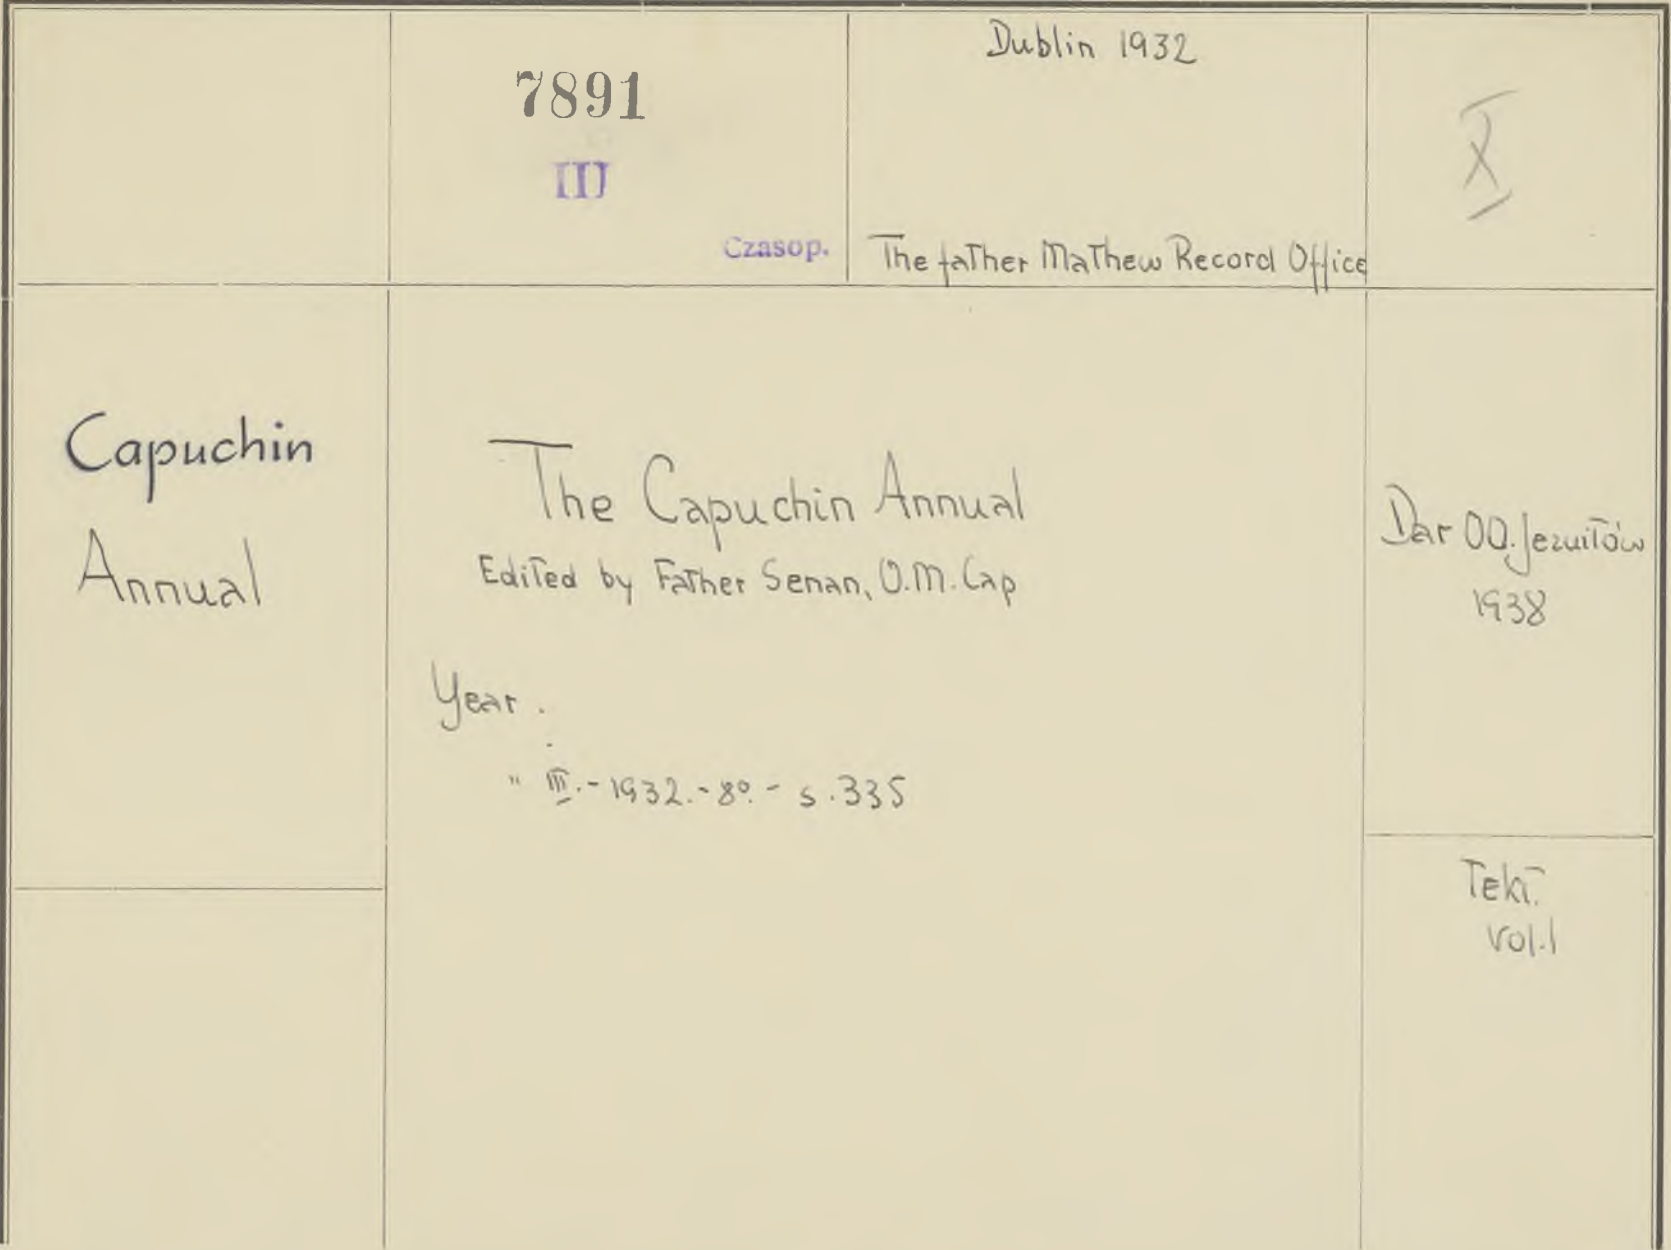 Dublin 1932
7891
III
X
Czasop.
The father Mathew Record Office
Capuchin
Annual
The Capuchin Annual
Edited by Father Senan, O.M.Cap
Year .
" III.-1932.-8º.- s.335
Dar OO.Jezuitów
1938
Tekt.
vol.1